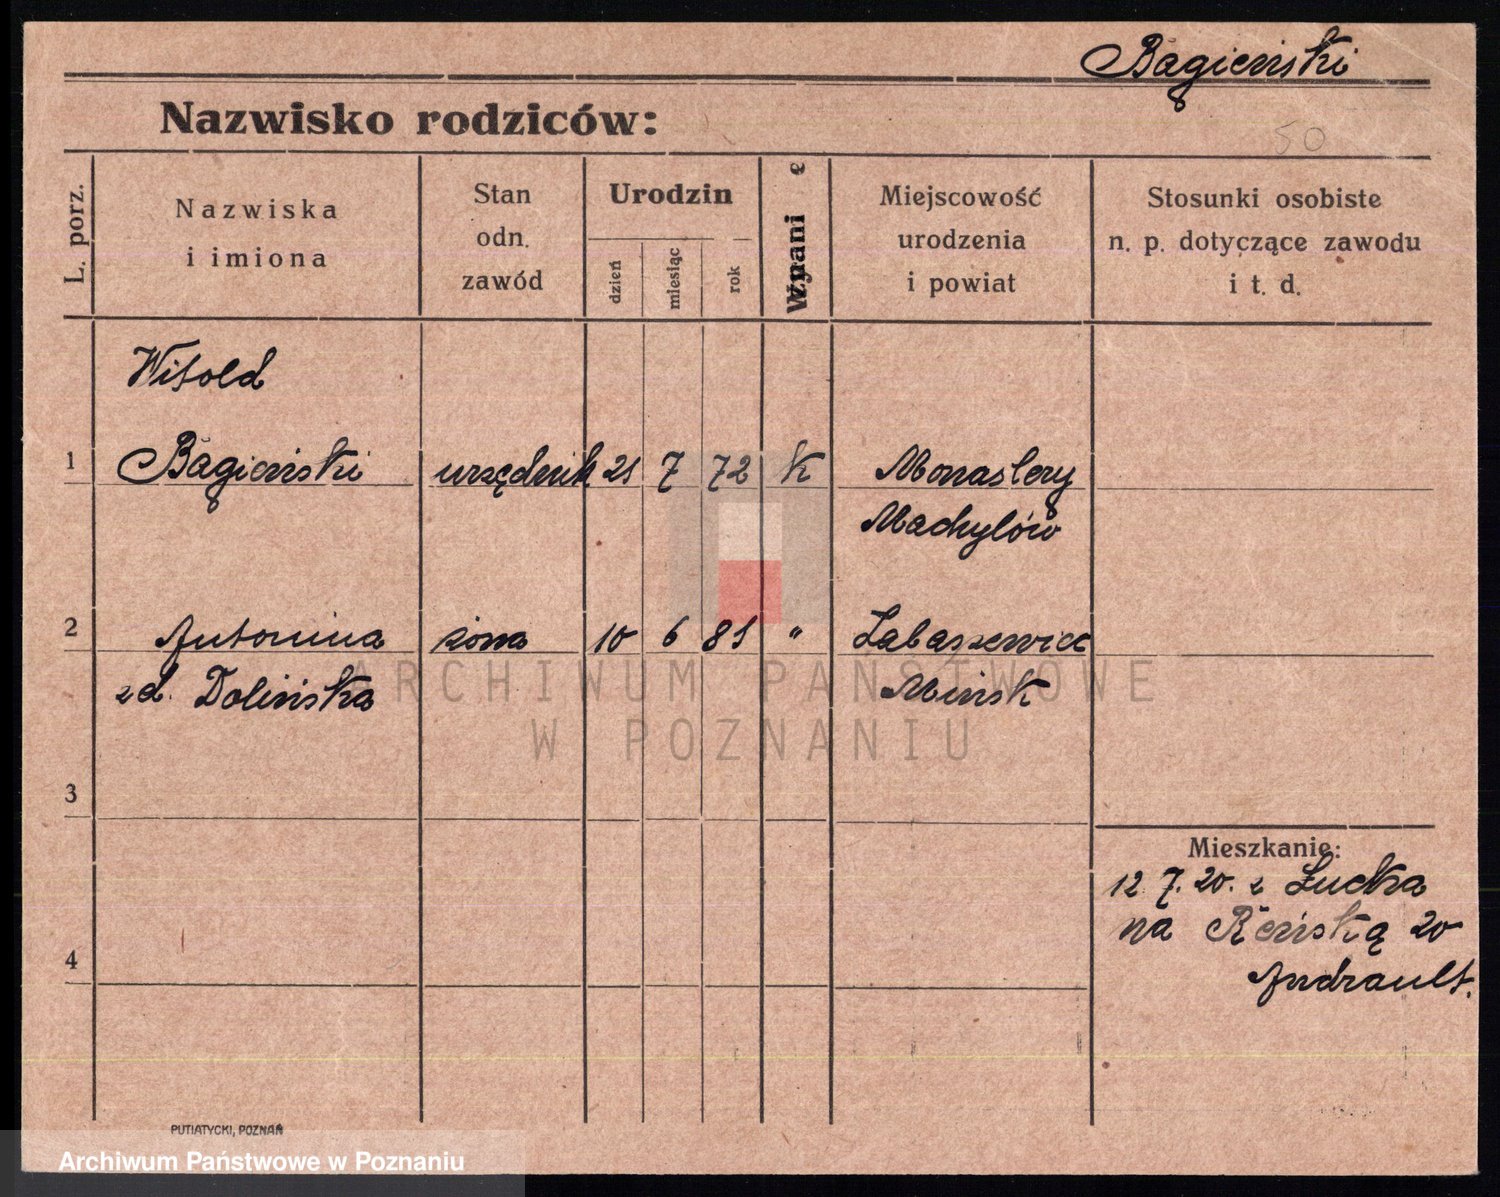 Bagieński
Nazwisko rodziców:
50
L. porz.
Nazwiska
i imiona
Stan
odn.
zawód
Urodzin
dzień
miesiąc
rok
Wyznanie
Miejscowość
urodzenia
i powiat
Stosunki osobiste
n. p. dotyczące zawodu
i t. d.
Witold
1 Bagieński urzędnik 21 7 72 K Monastery
Machylów
2 Antonina żona 10 6 81 " Łabaszewicz
zd. Dolińska Mińsk
3
Mieszkanie:
12.7.20. z Łucka
na Reńską 20
Andrault.
4
PUTIATYCKI, POZNAŃ
ARCHIWUM PAŃSTWOWE
W POZNANIU
Archiwum Państwowe w Poznaniu